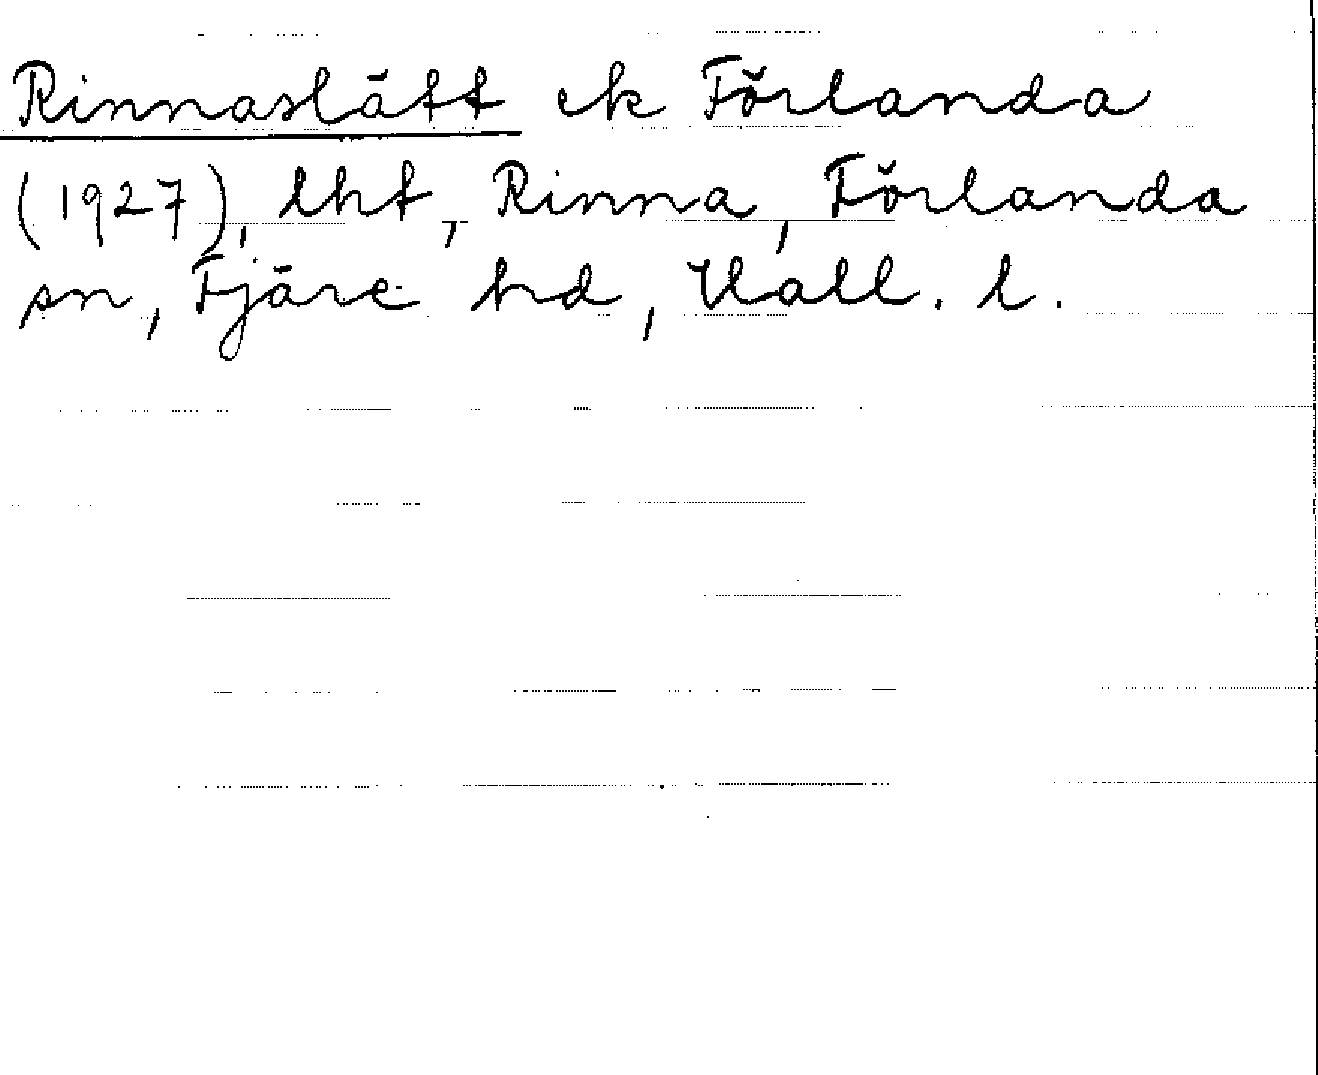 Rinnaslätt ek Förlanda
(1927), lht, Rinna, Förlanda
sn, Fjäre hd, Hall. l.